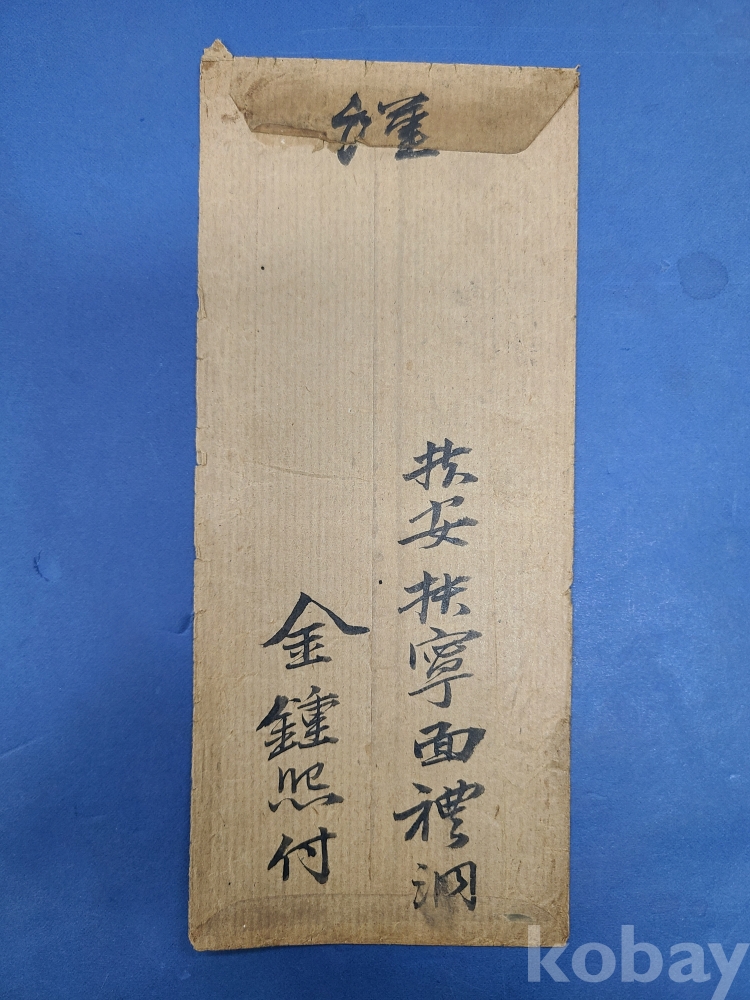 謹
扶安扶寧面禮洞
金鍾熙付
kobay